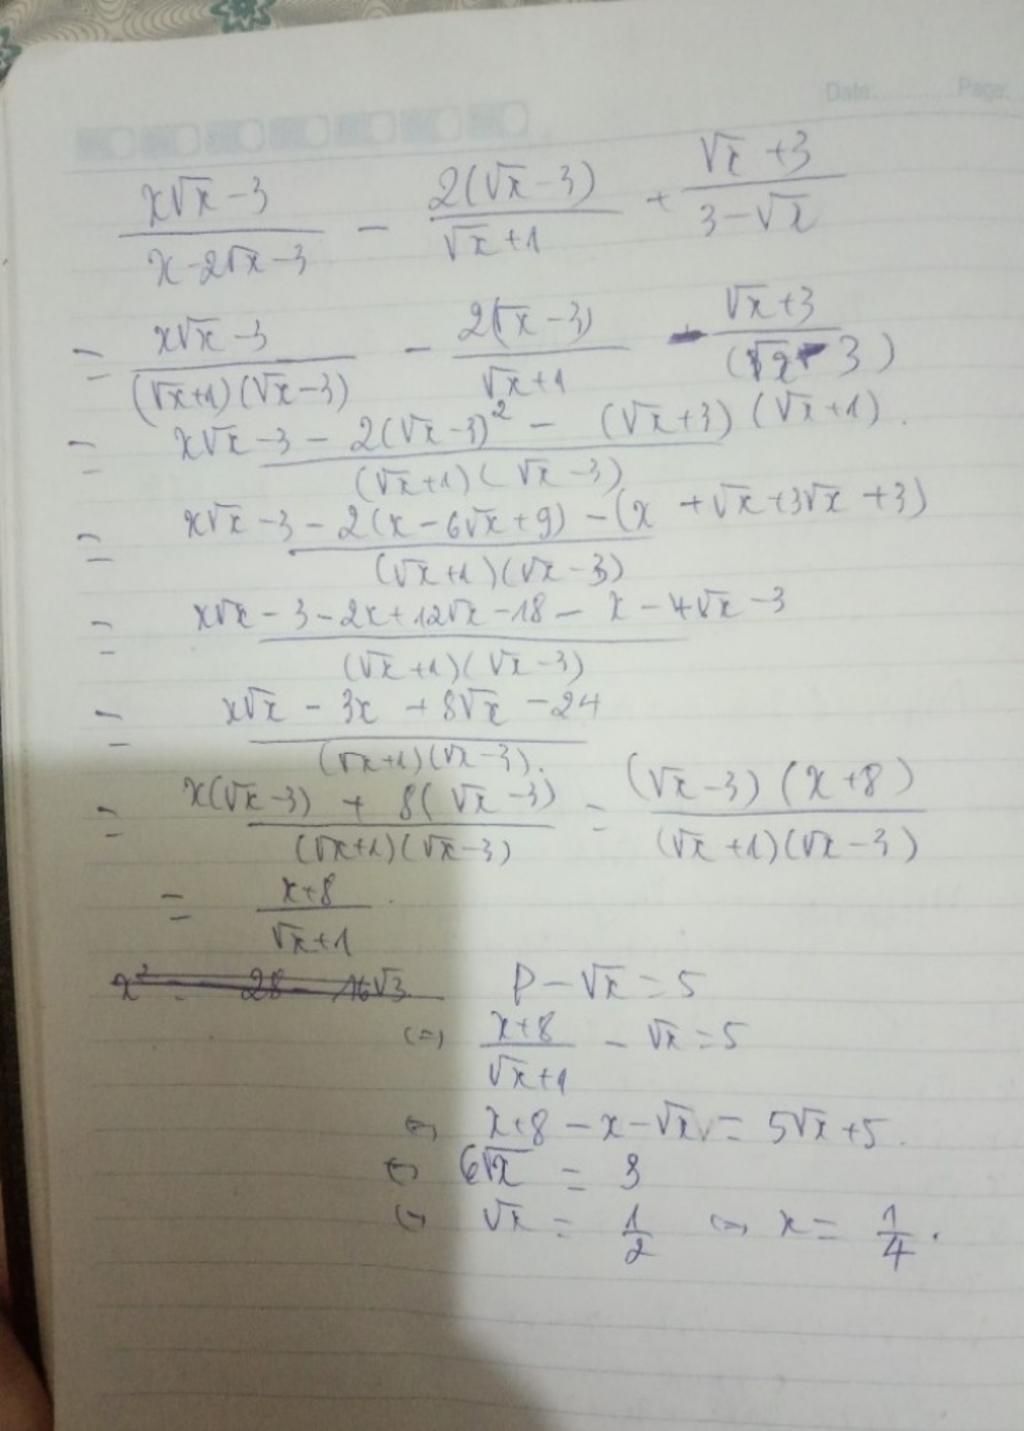 Date: Page:
x√x - 3 / x - 2√x - 3 - 2(√x - 3) / √x + 1 + √x + 3 / 3 - √x
= x√x - 3 / (√x+1)(√x-3) - 2(√x - 3) / √x + 1 - √x + 3 / (√x - 3)
= x√x - 3 - 2(√x - 3)² - (√x + 3)(√x + 1) / (√x + 1)(√x - 3)
= x√x - 3 - 2(x - 6√x + 9) - (x + √x + 3√x + 3) / (√x + 1)(√x - 3)
= x√x - 3 - 2x + 12√x - 18 - x - 4√x - 3 / (√x + 1)(√x - 3)
= x√x - 3x + 8√x - 24 / (√x+1)(√x - 3).
= x(√x - 3) + 8(√x - 3) / (√x+1)(√x-3) = (√x - 3)(x + 8) / (√x + 1)(√x - 3)
= x+8 / √x+1
x² = 28 - 16√3 P - √x = 5
(=) x+8 / √x+1 - √x = 5
(=) x+8 - x - √x = 5√x + 5.
(=) 6√x = 3
(=) √x = 1/2 (=) x = 1/4.